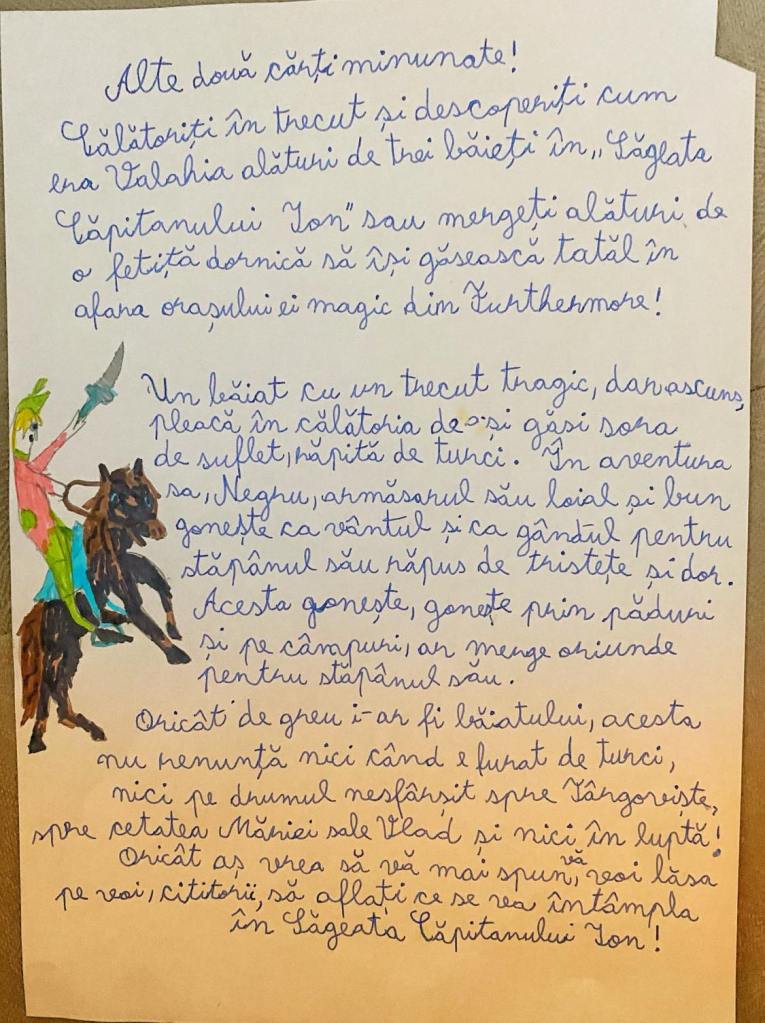 Alte două cărți minunate!
Călătoriți în trecut și descoperiți cum
era Valahia alături de trei băieți în „Săgeata
Căpitanului Ion" sau mergeți alături de
o fetiță dornică să își găsească tatăl în
afara orașului ei magic din Furthermore!
Un băiat cu un trecut tragic, dar ascuns,
pleacă în călătoria de a-și găsi sora
de suflet, răpită de turci. În aventura
sa, Negru, armăsarul său loial și bun
gonește ca vântul și ca gândul pentru
stăpânul său răpus de tristețe și dor.
Acesta gonește, gonește prin păduri
și pe câmpuri, ar merge oriunde
pentru stăpânul său.
Oricât de greu i-ar fi băiatului, acesta
nu renunță nici când e furat de turci,
nici pe drumul nesfârșit spre Târgoviște,
spre cetatea Măriei sale Vlad și nici în luptă!
Oricât aș vrea să vă mai spun, vă voi lăsa
pe voi, cititorii, să aflați ce se va întâmpla
în Săgeata Căpitanului Ion!